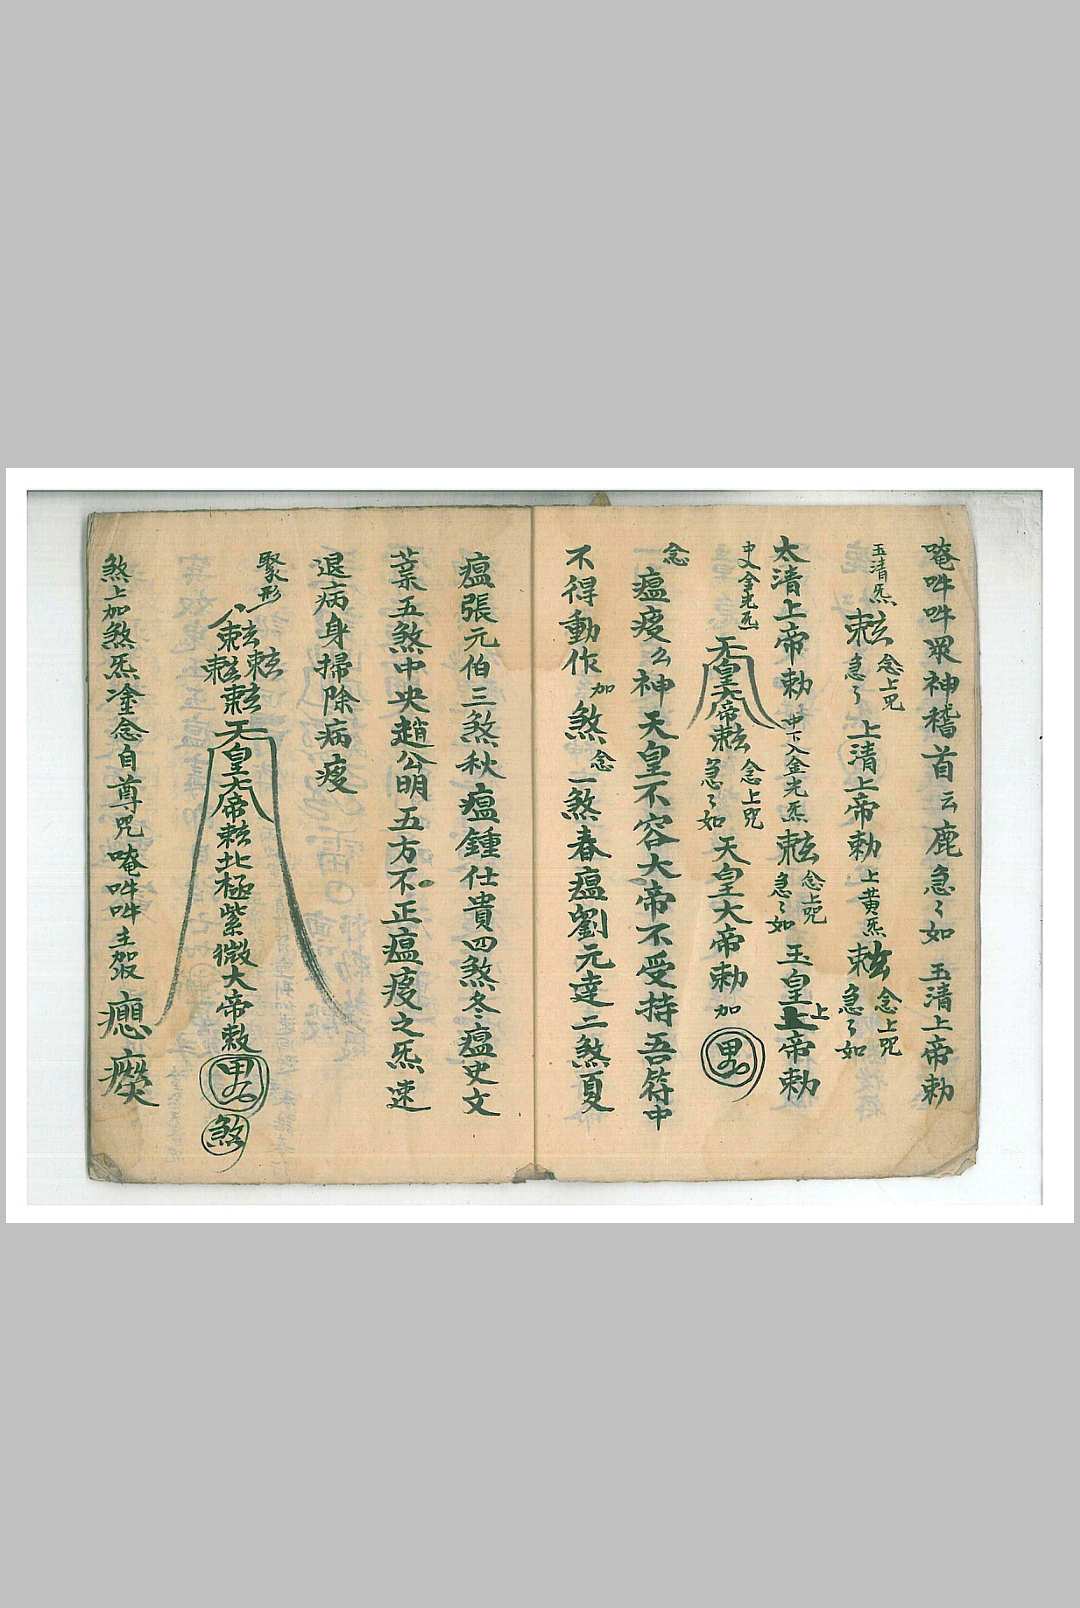 唵吽吽眾神稽首云鹿急〻如玉清上帝勅
玉清炁 𠡠 念上咒 急〻 上清上帝勅 上黄炁 𠡠 念上咒 急〻如
太清上帝勅 中下入金光炁 𠡠 念上咒 急〻如 玉皇上帝勅
中又金光炁 天皇大帝𠡠 念上咒 急〻如 天皇大帝勅 加 男
念 瘟疫么神天皇不容大帝不受持吾符中
不得動作 加 煞 念 一煞春瘟劉元達二煞夏
瘟張元伯三煞秋瘟鍾仕貴四煞冬瘟史文
業五煞中央趙公明五方不正瘟疫之炁速
退病身掃除病疫
聚形 天皇大帝𠡠北極紫微大帝敕 男 煞
煞上加煞炁塗念自尊咒唵吽吽